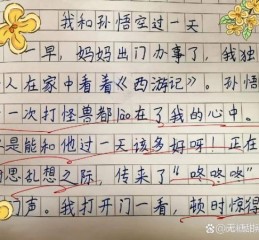 我和孙悟空过一天
一早，妈妈出门办事了，我独
人在家中看着《西游记》。孙悟
一次打怪兽都在了我的心中。
是能和他过一天该多好呀！正在
思乱想之际，传来了“咚咚咚”
门声。我打开门一看，顿时惊得